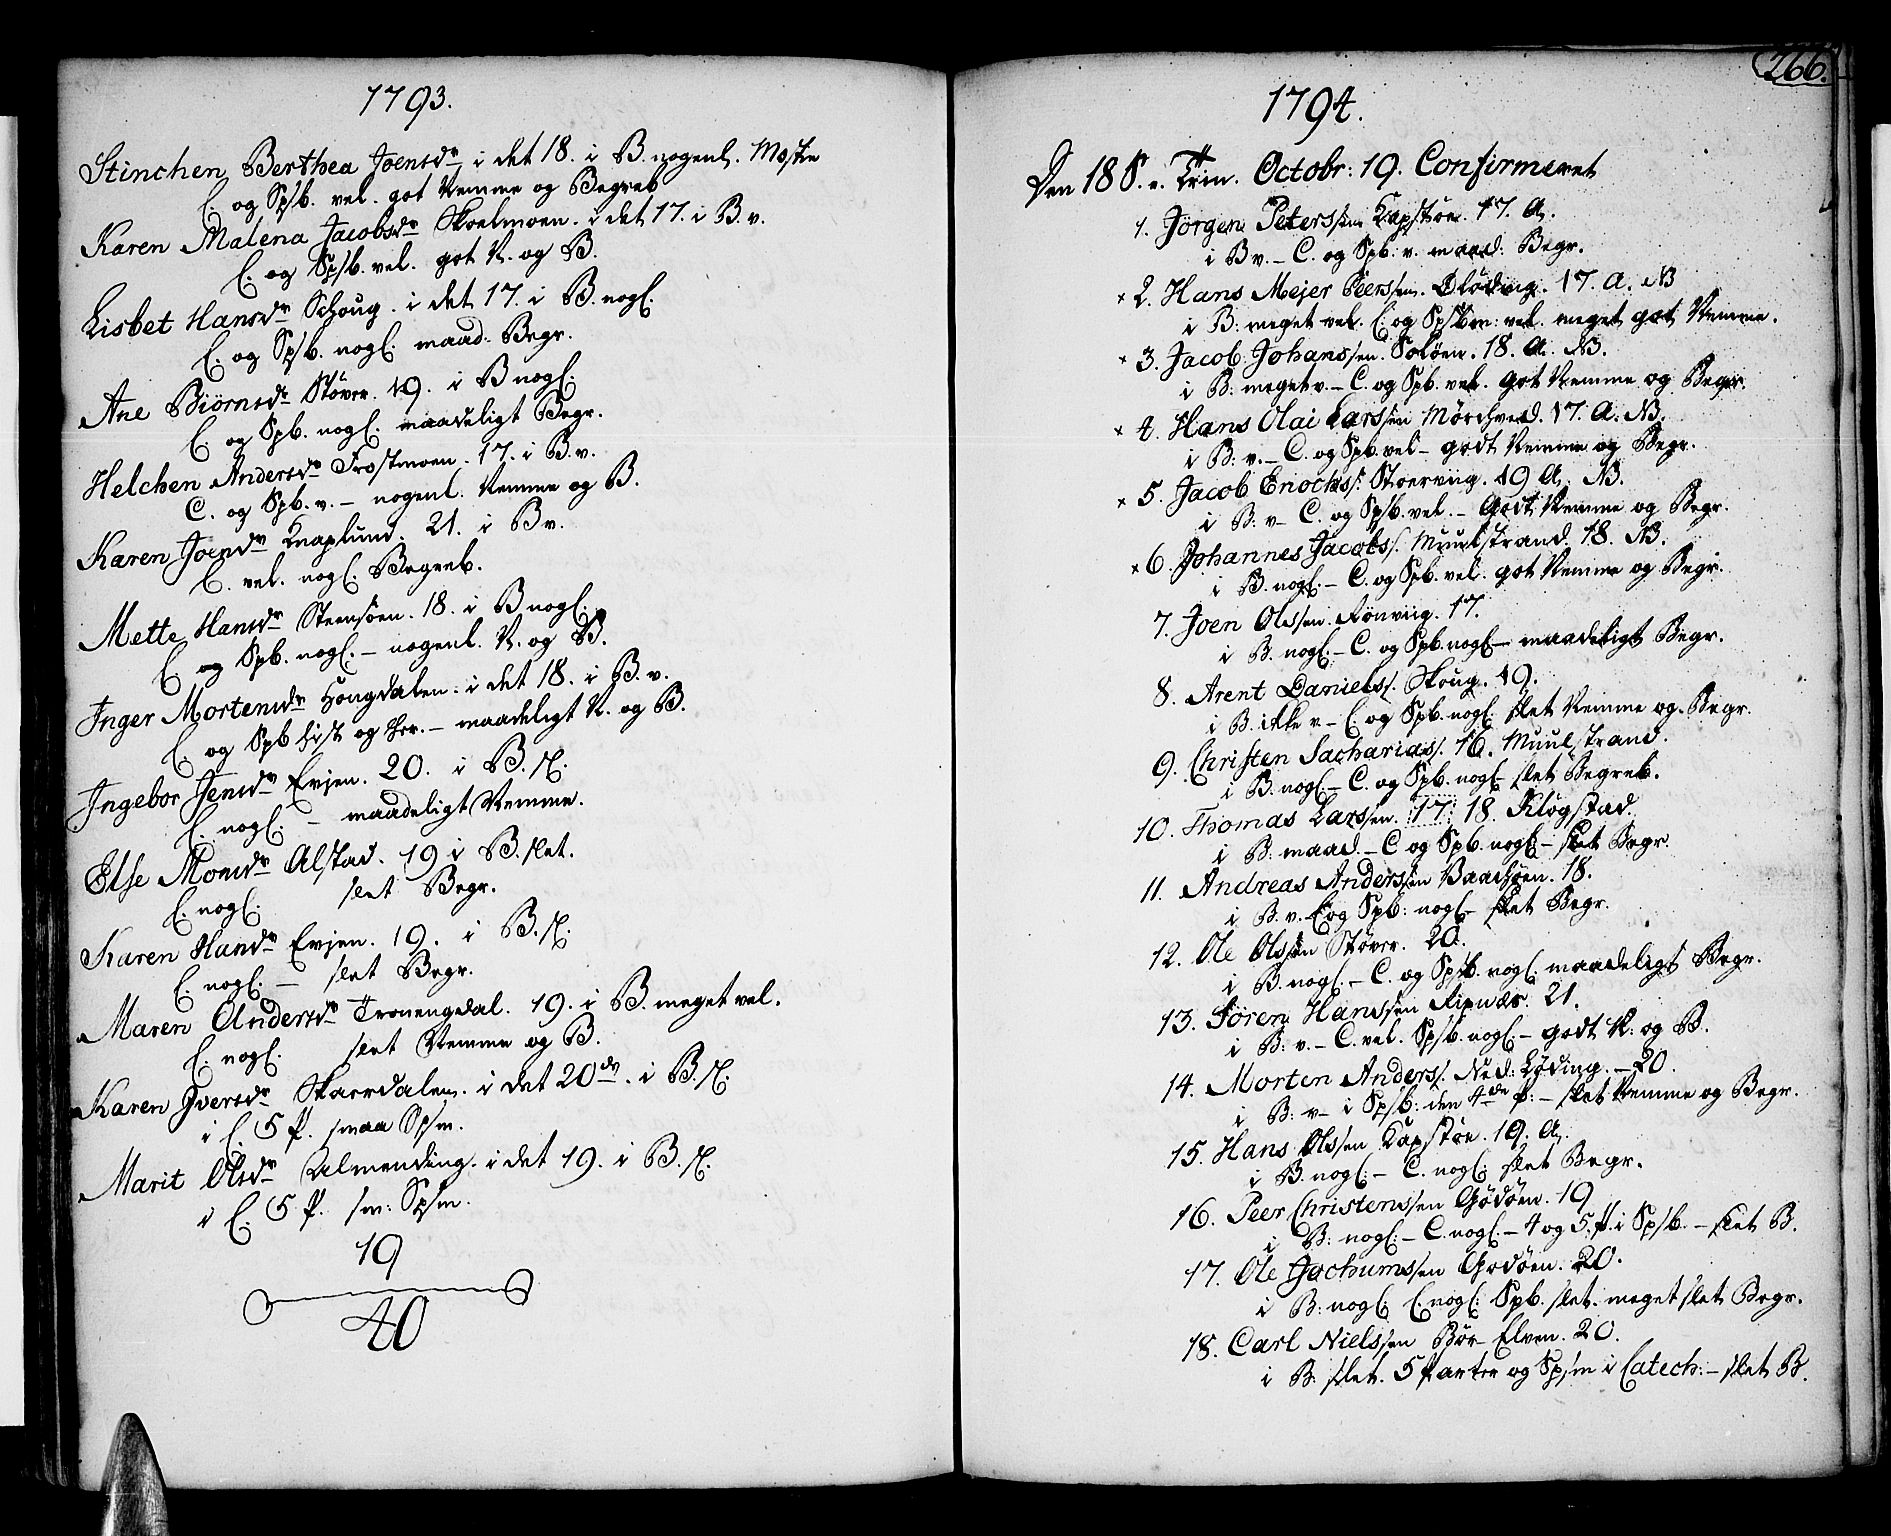 1793.
Stinchen Berthea Joensdr i det 18. i B. nogenl. Meste
C. og Spsb. vel. got Nemme og Begreb
Karen Malena Jacobsdr Skoelmoen. i det 17. i B. v.
C. og Spsb. vel. got N. og B.
Lisbet Hansdr Schoug. i det 17. i B. nogl.
C. og Spsb. nogl. maad. Begr.
Ane Biørnsdr Støver. 19. i B nogl.
C. og Spb. nogl. maadeligt Begr.
Helchen Andersdr Trostmoen. 17. i B. v.
C. og Spb. v. – nogenl. Nemme og B.
Karen Joensdr Knaplund. 21. i B v.
C. vel. nogl. Begreb.
Mette Hansdr Steensøen. 18. i B nogl.
C og Spb. nogl. – nogenl. N. og B.
Inger Mortensdr Hougdalen. i det 18. i B. v.
C. og Spb hist og her. – maadeligt N. og B.
Ingebor Jensdr Evjen. 20. i B. sl.
C. nogl. – maadeligt Nemme.
Else Monsdr Alstad. 19 i B. slet.
C. nogl. slet Begr.
Karen Hansdr Evjen. 19. i B. sl.
C. nogl. – slet Begr.
Maren Andersdr Tronengdal. 19. i B. meget vel.
C. nogl. slet Nemme og B.
Karen Iversdr Skarrdalen. i det 20de. i B. sl.
i C. 5 P. smaa Spsm.
Marit Olsdr Almending. i det 19. i B. sl.
i C. 5 P. sm: Spsm.
19
40
266.
1794.
Den 18 S. e. Trin. Octobr: 19. Confirmeret
1. Jørgen Peterssen Kapstøe. 17. A.
i B v. – C. og Spb. v. maad. Begr.
× 2. Hans Mejer Peerssen. Løding. 17. A. NB
i B: meget vel. C. og Spsbm: vel. meget got Nemme.
× 3. Jacob Johanssen. Soløen. 18. A. NB.
i B: meget v. – C. og Spb. vel. got Nemme og Begr.
× 4. Hans Olai Larssen Mørchved. 17. A. NB.
i B: v. – C. og Spb. vel – godt Nemme og Begr.
× 5. Jacob Enochs. Stoerviig. 19 A. NB.
i B: v – C. og Spb. vel. – Godt Nemme og Begr.
× 6. Johannes Jacobs. Muulstrand. 18. NB.
i B. nogl. – C. og Spb. vel. got Nemme og Begr.
7. Joen Olssen. Rønviig. 17.
i B. nogl. – C. og Spb. nogl – maadeligt Begr.
8. Arent Daniels. Skoug. 19.
i B. ikke v – C. og Spb. nogl. slet Nemme og Begr.
9. Christen Sacharias. 16. Muulstrand.
i B. nogl – C. og Spb. nogl – slet Begreb.
10. Thomas Larssen. 17. 18. Kløgstad.
i B. maad. – C og Spb. nogl – slet Begr.
11. Andreas Anderssen Vaaghøen. 18.
i B. v. C og Spb: nogl – slet Begr.
12. Ole Olssen Støver. 20.
i B. nogl. – C. og Spsb. nogl. maadeligt Begr.
13. Søren Hanssen Ripnæs. 21.
i B: v. – C. vel. Spsb. nogl. – godt N: og B.
14. Morten Anders. Ned: Løding. – 20.
i B: v – i Spsb: den 4de P: – slet Nemme og Begr.
15. Hans Olssen Kapstøe. 19. A.
i B. nogl. – C. nogl. slet Begr.
16. Peer Christenssen Godøen. 19
i B: nogl. – C. nogl. – 4 og 5. P. i Spsb. – slet B.
17. Ole Jochumssen Godøen. 20.
i B: nogl. C. nogl: Spb. slet. meget slet Begr.
18. Carl Nielssen Bør-Elven. 20.
i B: slet. 5 Parter og Spsm i Catech: – slet B.